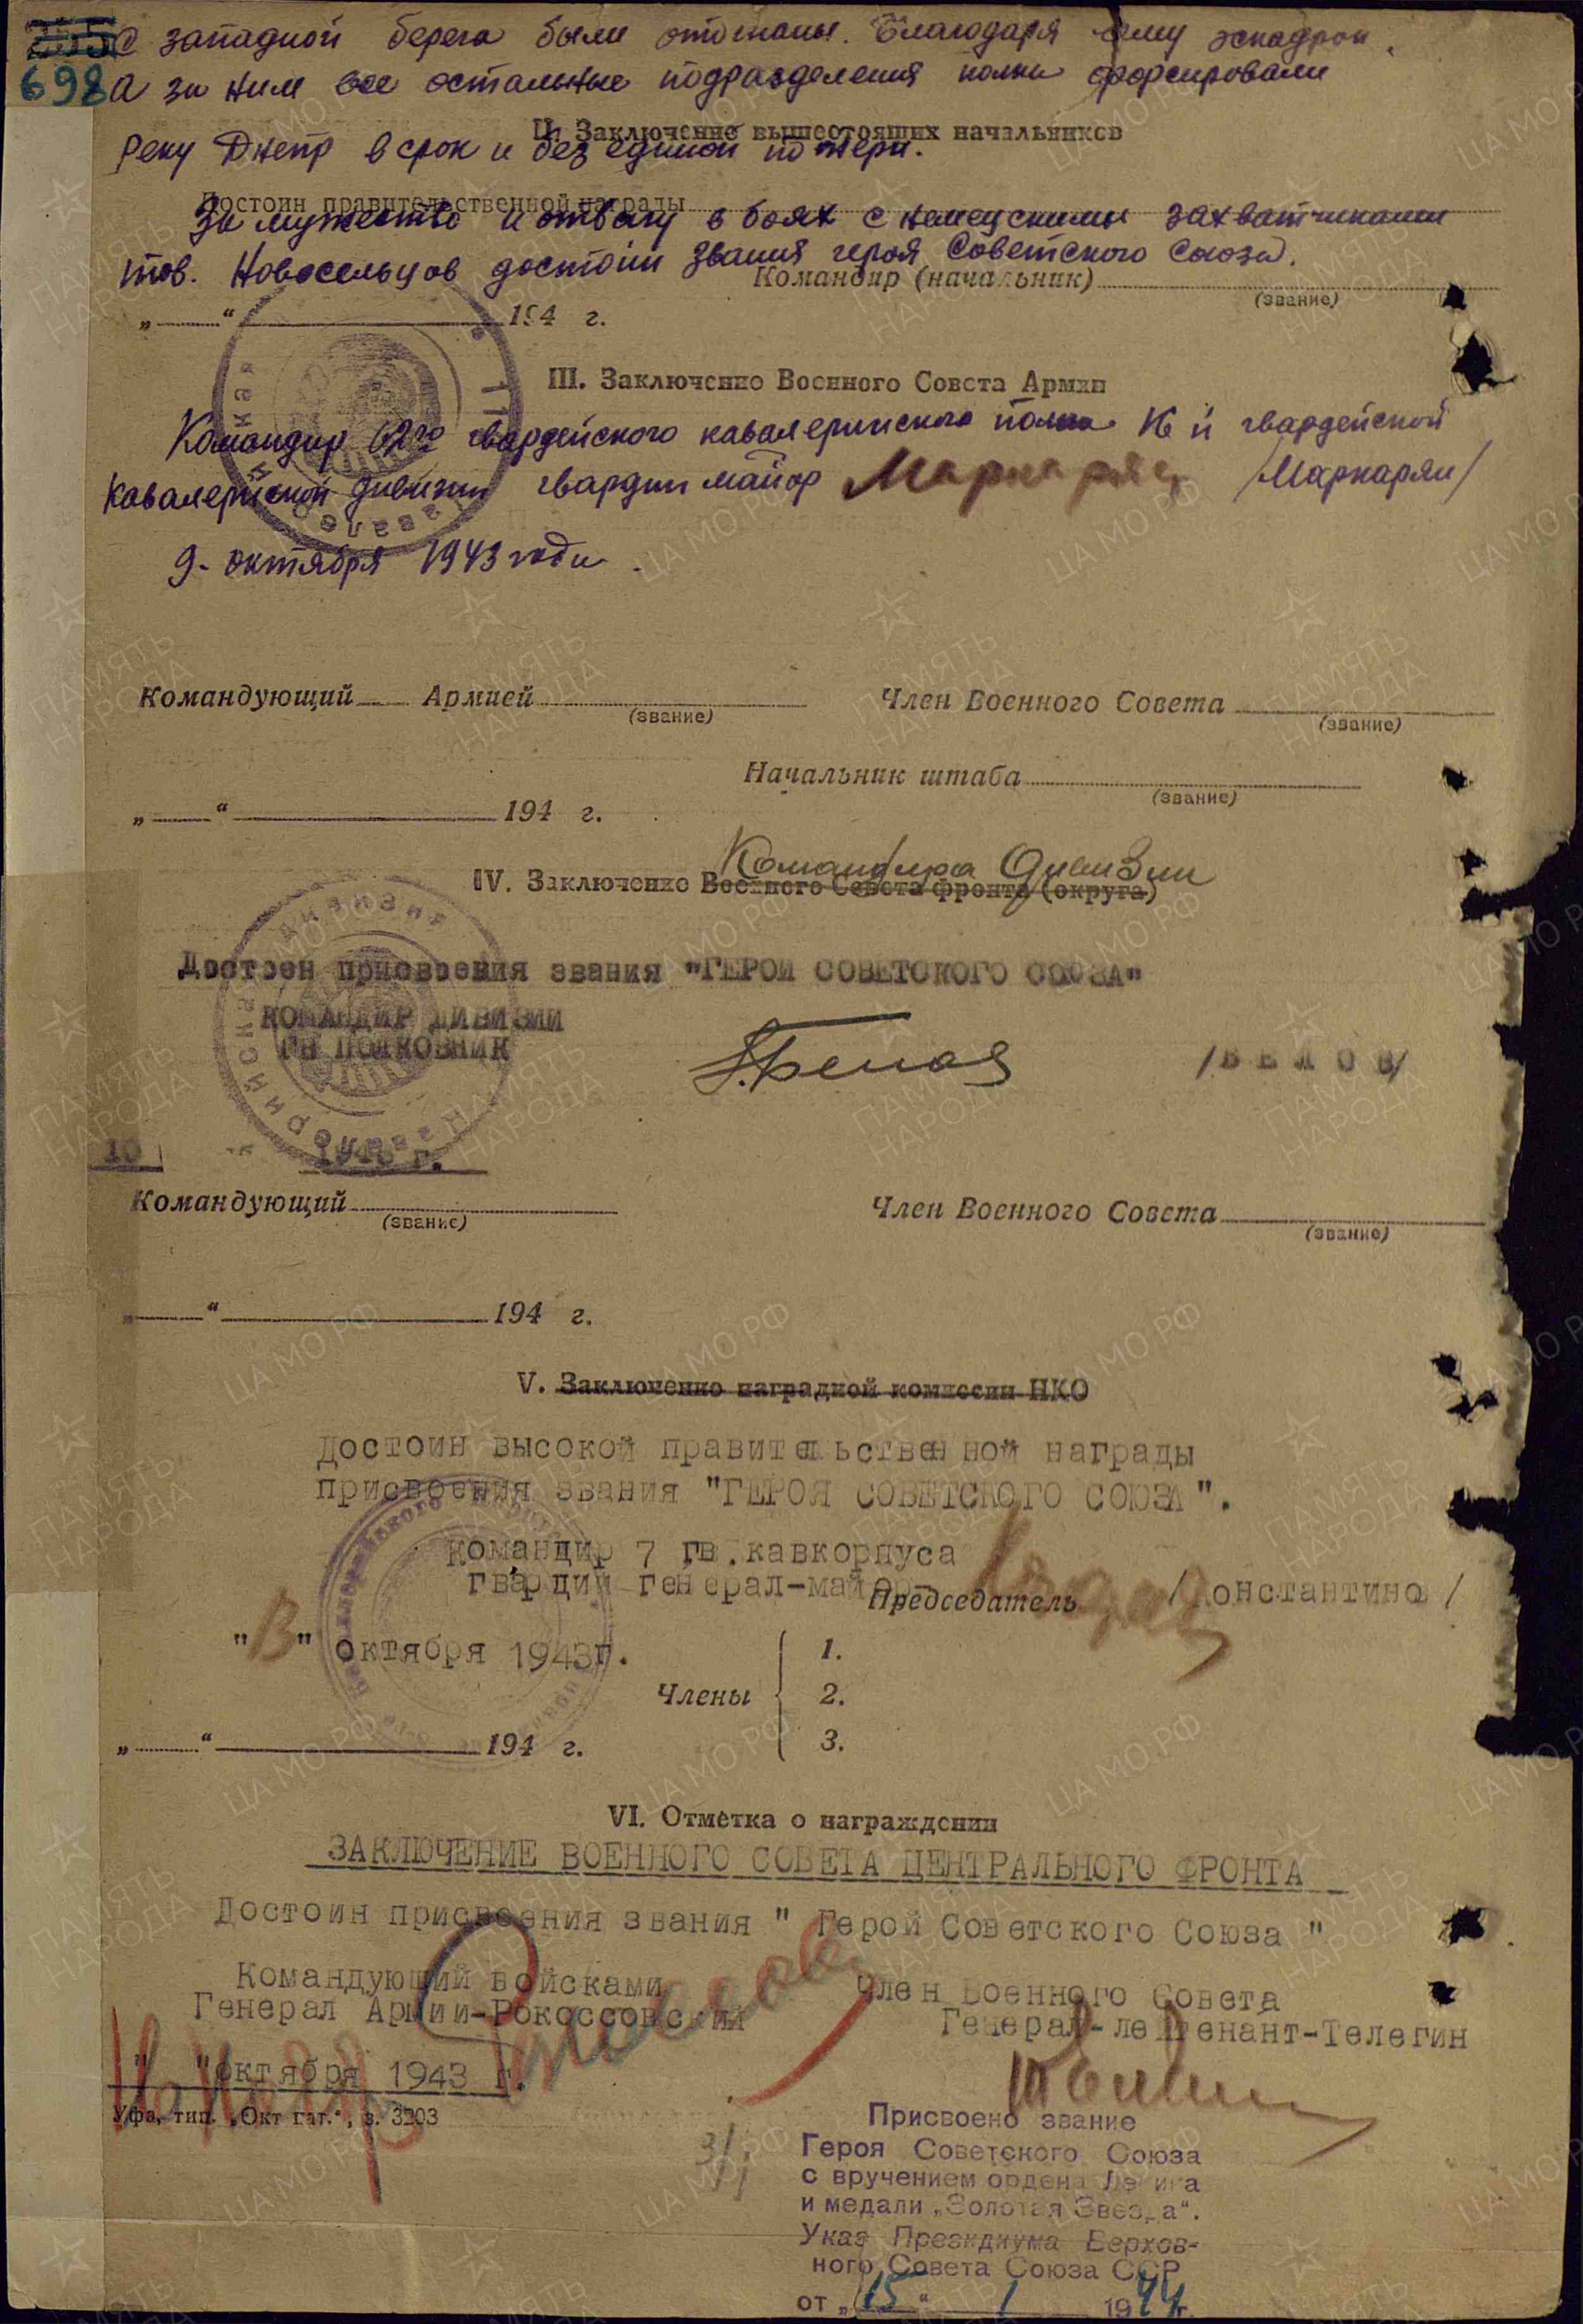 255
698
с западной берега были отогнаны. Благодаря ему эскадрон,
а за ним все остальные подразделения полка форсировали
II. Заключение вышестоящих начальников
реку Днепр в срок и без единой потери.
Достоин правительственной награды
За мужество и отвагу в боях с немецкими захватчиками
тов. Новосельцов достоин звания героя Советского Союза.
Командир (начальник)
(звание)
„ “ 194 г.
III. Заключение Военного Совета Армии
Командир 62го гвардейского кавалерийского полка 16 й гвардейской
кавалерийской дивизии гвардии майор Маркарян /Маркарян/
9 - октября 1943 года.
Командующий Армией
(звание)
Член Военного Совета
(звание)
Начальник штаба
(звание)
„ “ 194 г.
Командира Дивизии
IV. Заключение Военного Совета фронта (округа)
Достоен присвоения звания "ГЕРОЙ СОВЕТСКОГО СОЮЗА"
КОМАНДИР ДИВИЗИИ
ГВ ПОЛКОВНИК
Белов
/БЕЛОВ/
10
1943 г.
Командующий
(звание)
Член Военного Совета
(звание)
„ “ 194 г.
V. Заключение наградной комиссии НКО
Достоин высокой правительственной награды
присвоения звания "ГЕРОЯ СОВЕТСКОГО СОЮЗА".
Командир 7 гв.кавкорпуса
гвардии генерал-майор-
Председатель
/Константинов/
"13" октября 1943г.
Члены
1.
2.
3.
„ “ 194 г.
VI. Отметка о награждении
ЗАКЛЮЧЕНИЕ ВОЕННОГО СОВЕТА ЦЕНТРАЛЬНОГО ФРОНТА
Достоин присвоения звания " Герой Советского Союза "
Командующий войсками
Генерал Армии-Рокоссовский
Член Военного Совета
Генерал-лейтенант-Телегин
" "октября 1943 г.
Уфа, тип. „Окт нат.“, з. 3303
Присвоено звание
Героя Советского Союза
с вручением ордена Ленина
и медали „Золотая Звезда“.
Указ Президиума Верхов-
ного Совета Союза ССР
от „15“ 1 1944г.